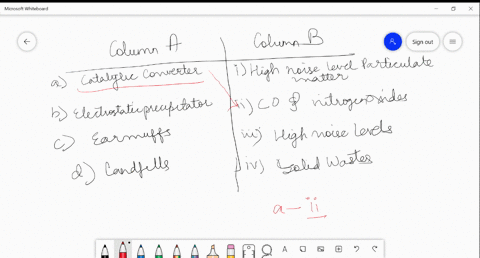 Microsoft Whiteboard
Sign out
Column A
Column B
a) Catalytic Converter
i) High noise level Particulate
matter
b) Electrostatic precipitator
ii) CO & nitrogen oxides
c) Earmuffs
iii) High noise Levels
d) Landfells
iv) Solid Wastes
a - ii